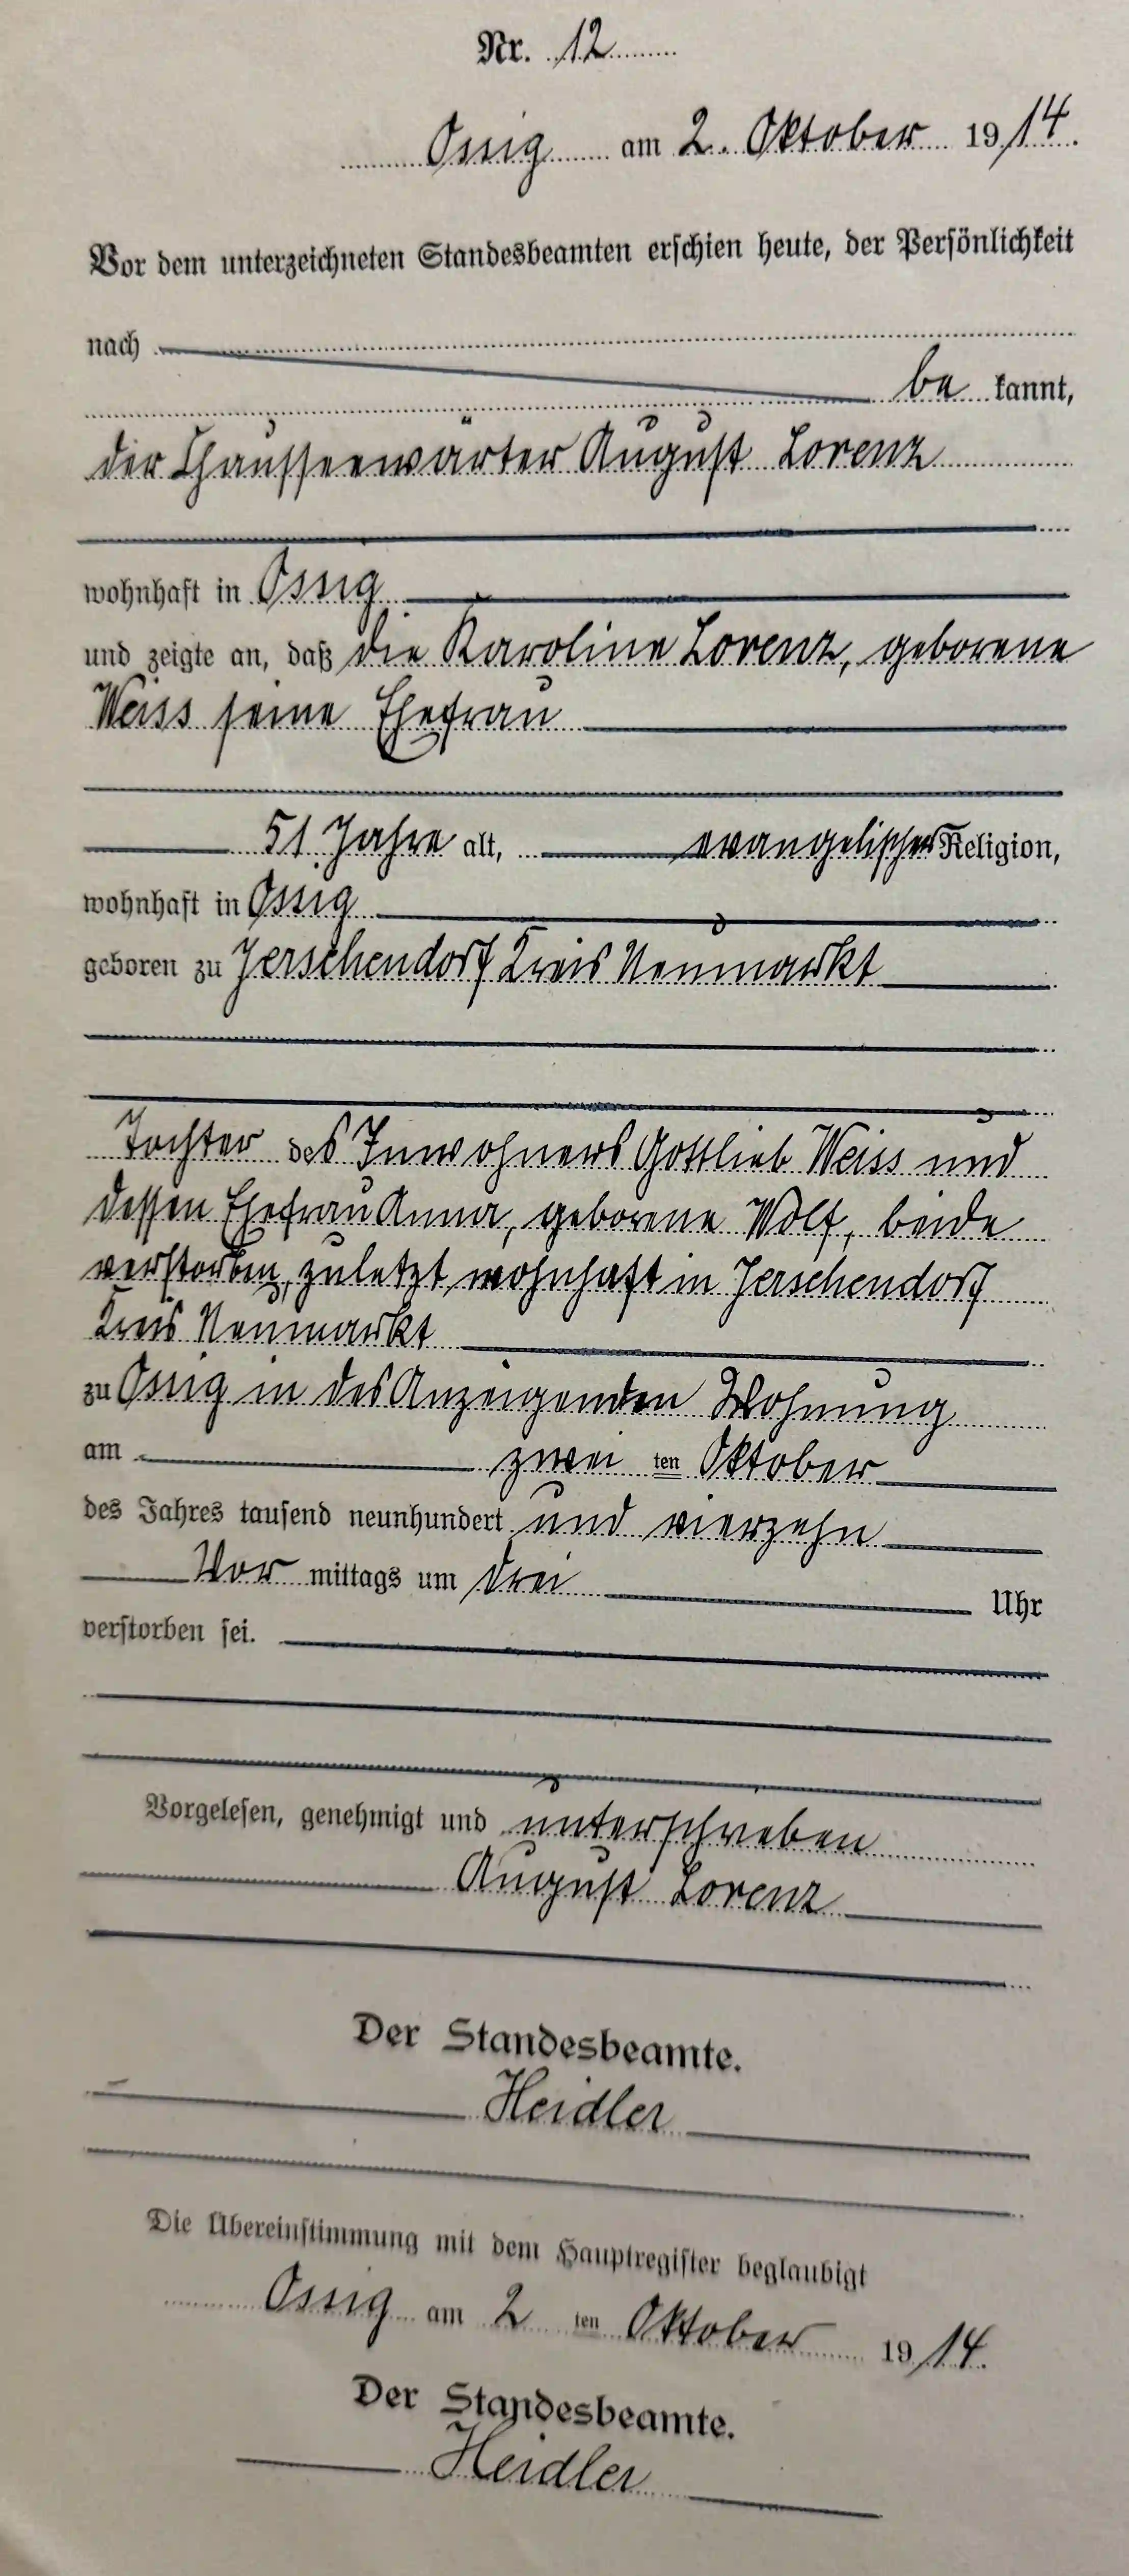 Nr. 12
Ossig am 2. Oktober 1914.
Vor dem unterzeichneten Standesbeamten erschien heute, der Persönlichkeit
nach
be kannt,
der Chausseewärter August Lorenz
wohnhaft in Ossig
und zeigte an, daß die Karoline Lorenz, geborene
Weiss seine Ehefrau
51 Jahre alt, evangelischer Religion,
wohnhaft in Ossig
geboren zu Jerschendorf Kreis Neumarkt
Tochter des Inwohners Gottlieb Weiss und
dessen Ehefrau Anna, geborene Wolf, beide
verstorben, zuletzt wohnhaft in Jerschendorf
Kreis Neumarkt
zu Ossig in des Anzeigenden Wohnung
am zwei ten Oktober
des Jahres tausend neunhundert und vierzehn
Vor mittags um drei Uhr
verstorben sei.
Vorgelesen, genehmigt und unterschreben
August Lorenz
Der Standesbeamte.
Heidler
Die Übereinstimmung mit dem Hauptregister beglaubigt
Ossig am 2 ten Oktober 1914.
Der Standesbeamte.
Heidler